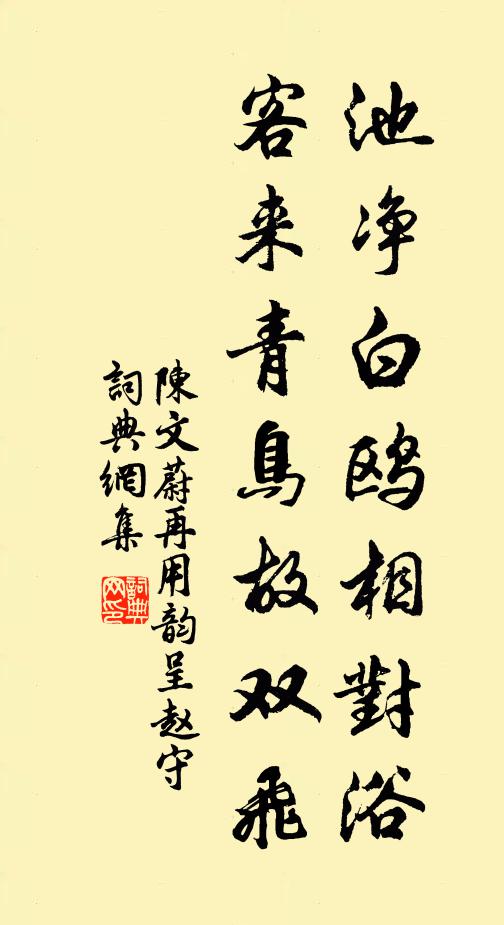 池净白鸥相對浴
客来青鳥故双飛
陳文蔚再用韵呈赵守
詞典網集
詞典
网印